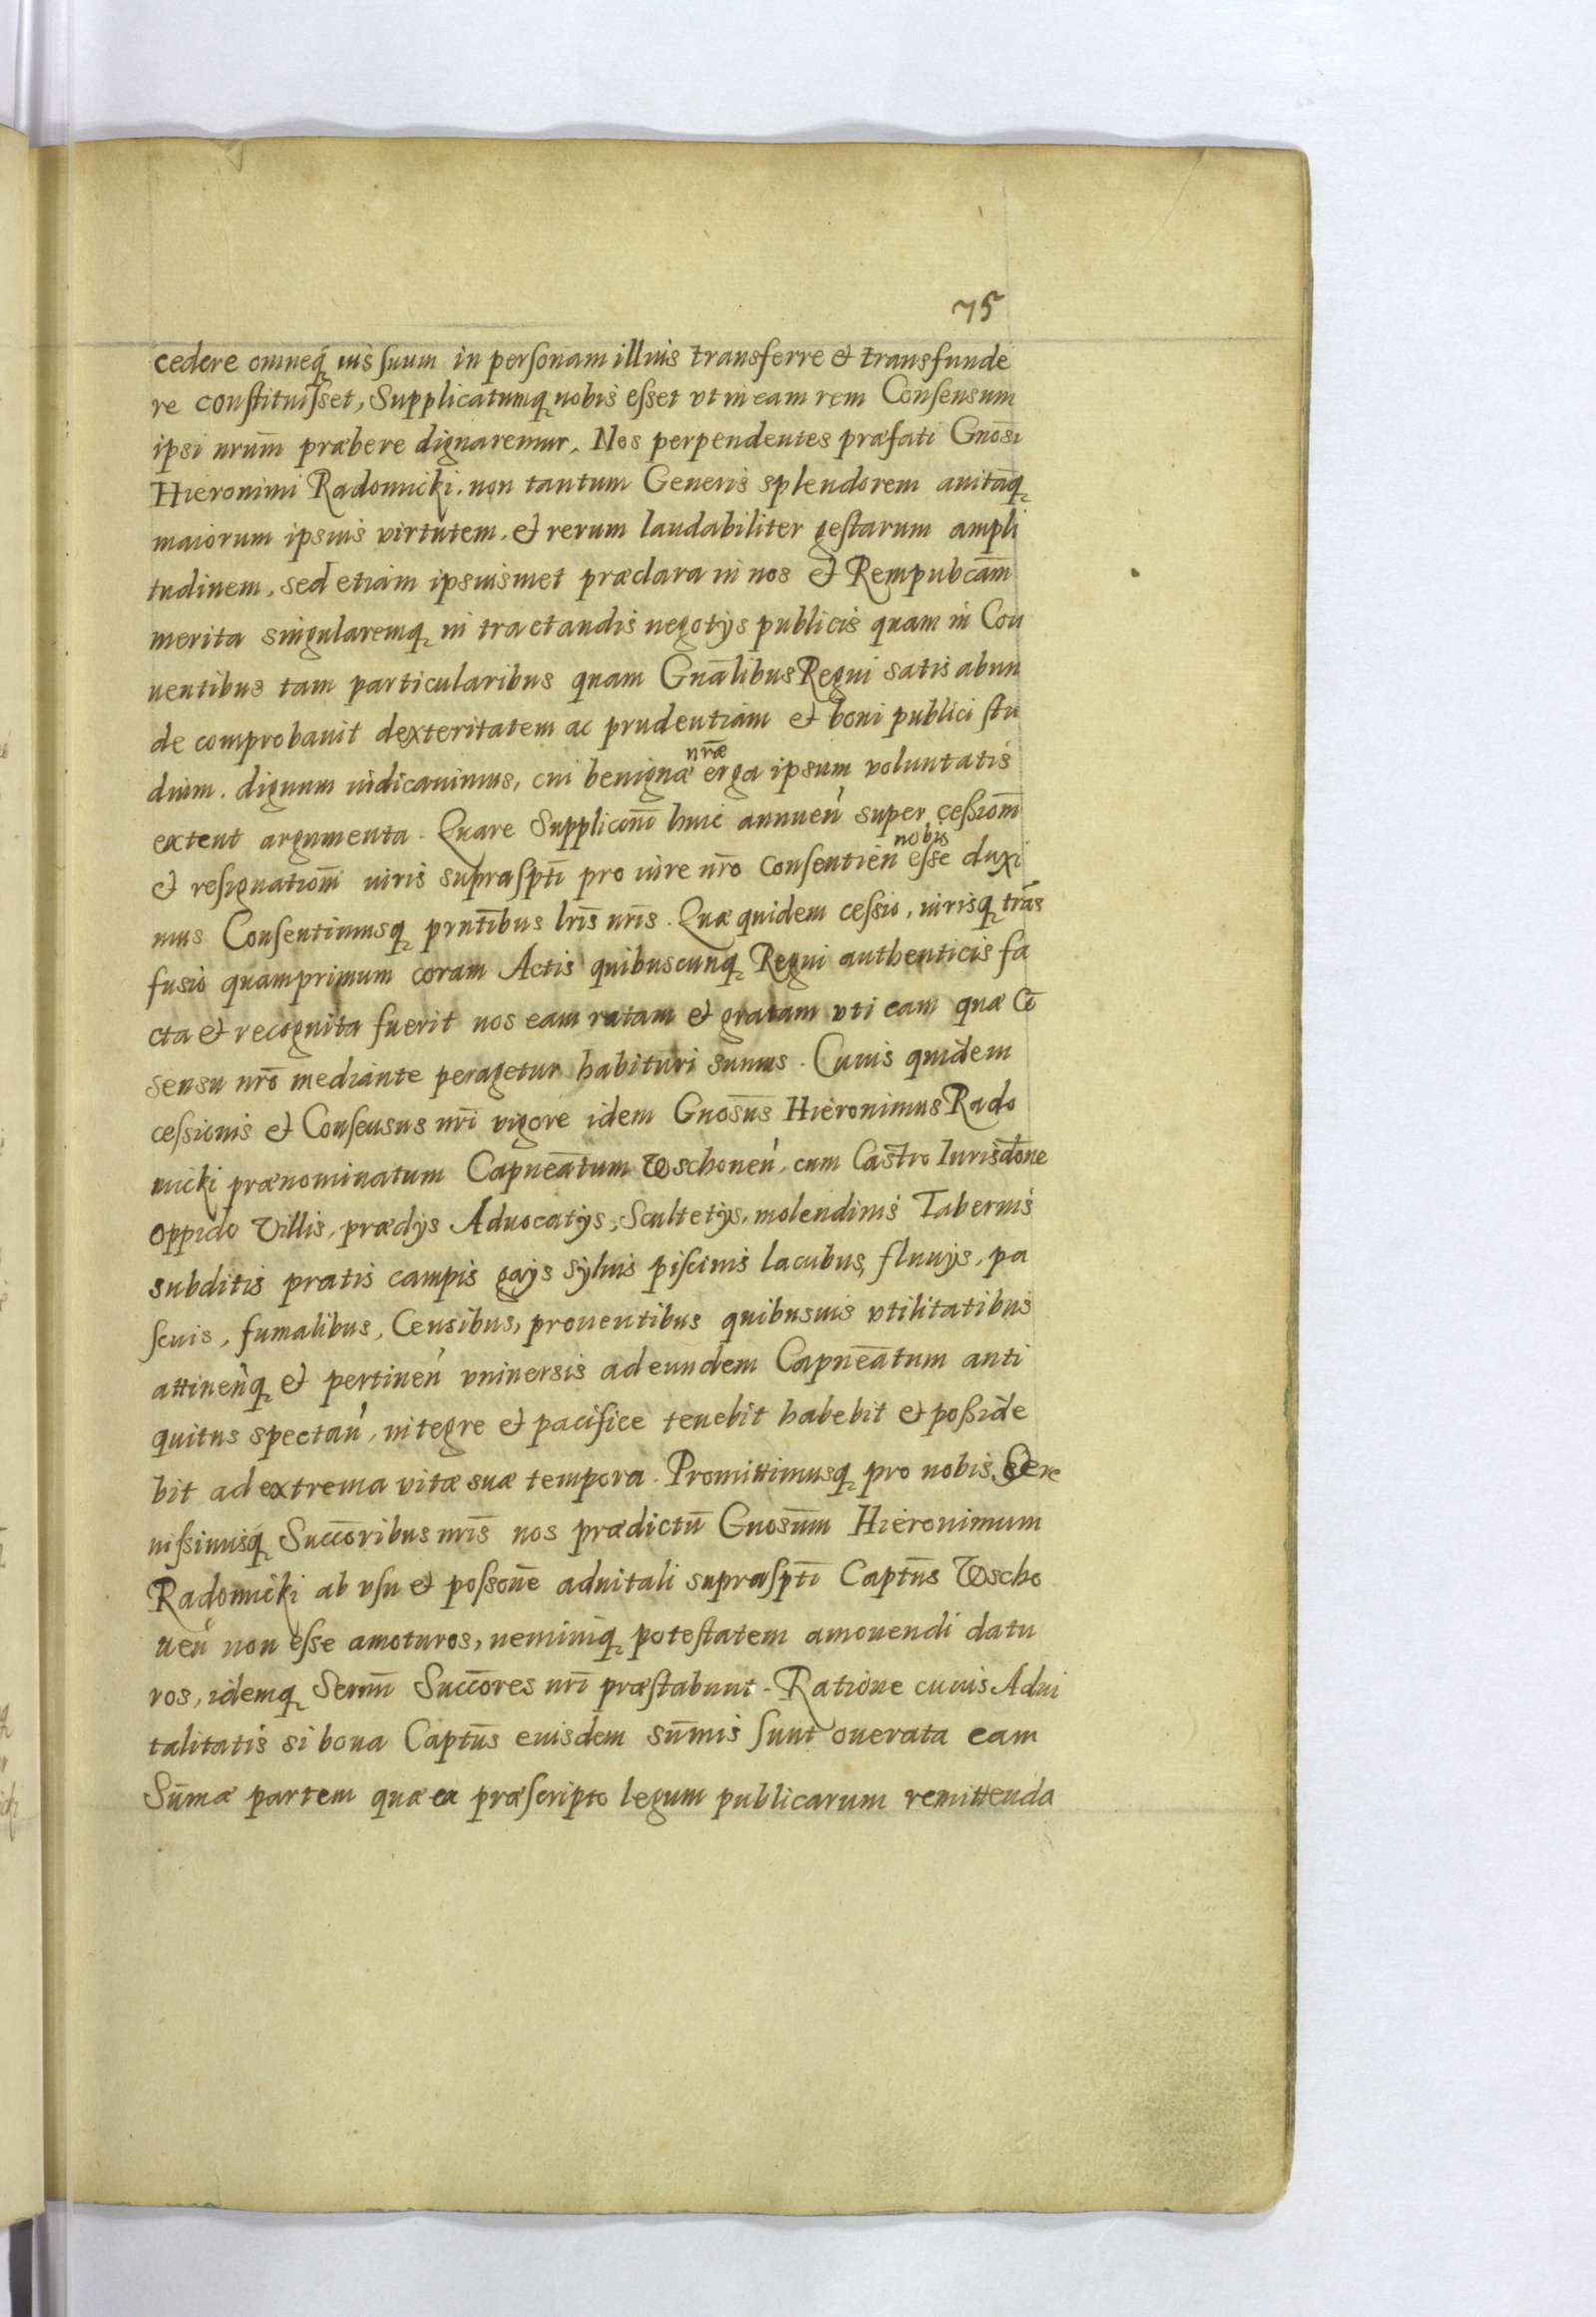 75
cedere omneq́ȝ ius suum in personam illius transferre et transfunde
re constituisset, Supplicatumqȝ nobis esset vt in eam rem Consensum
ipsi nrum̄ præbere dignaremur. Nos perpendentes præfati Gnosī
Hieronimi Radomicki. non tantum Generis splendorem auitāqȝ
maiorum ipsius virtutem. et rerum laudabiliter gestarum ampli
tudinem, sed etiam ipsiusmet præclara in nos et Rempubcām
merita singularemqȝ in tractandis negotÿs publicis quam in Con
uentibus tam particularibus quam Gnālibus Regni satis abun
de comprobauit dexteritatem ac prudentiam et boni publici stu
dium. dignum iudicauimus, cui benignæ nr̄æ erga ipsum voluntatis
extent argumenta. Quare Supplicōni huic annuen̓ super cessiom̄
et resignatiom̄ iuris supraspt̄i pro iure nr̄o Consentien̓ nobis esse duxi
mus Consentimusqȝ prnt̄ibus lr̄is nr̄is. Quæ quidem cessio, iurisqȝ trās
fusio quamprimum coram Actis quibuscunqȝ Regni authenticis fa
cta et recognita fuerit nos eam ratam et gratam vti eam quæ Cō
sensu nr̄o mediante peragetur habituri sumus. Cuius quidem
cessionis et Consensus nr̄i vigore idem Gnosūs Hieronimus Rado
micki prænominatum Capneātum Wschonen̓, cum Castro Iurisdōne
oppido Villis, prædÿs Aduocatÿs, Scultetÿs, molendinis Tabernis
subditis pratis campis gaÿs sÿluis piscinis lacubus, fluuÿs, pa
scuis, fumalibus, Censibus, prouentibus quibusuis vtilitatibus
attinen̓qȝ et pertinen̓ vniuersis ad eundem Capneātum anti
quitus spectan̓, integre et pacifice tenebit habebit et posside
bit ad extrema vitæ suæ tempora. Promittimusqȝ pro nobis, Sere
nissimisq́ȝ Succōribus nr̄is nos prædictū Gnosūm Hieronimum
Radomicki ab vsu et possōne aduitali supraspt̄i Captūs Wscho
nen̓ non esse amoturos, neminiqȝ potestatem amouendi datu
ros, idemqȝ Sermī Succōres nr̄i præstabunt. Ratione cuius Adui
talitatis si bona Captūs eiusdem sūmis sunt onerata eam
Sūmæ partem quæ ex præscripto legum publicarum remittenda